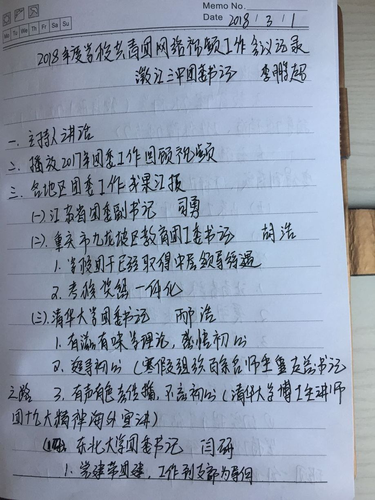 Memo No.
Date 2018 / 3 / 1
Mo Tu We Th Fr Sa Su
2018年度学校共青团网络视频工作会议记录
澂江三中团委书记 李鹏超
一. 主持人讲话
二. 播放2017年团委工作回顾视频
三. 各地区团委工作成果汇报
(一) 江苏省团委副书记 司勇
(二). 重庆市九龙坡区教育团工委书记 胡浩
1. 学校团干已经取得中层领导待遇
2. 考核奖组一体化
(三). 清华大学团委书记 邴浩
1. 有滋有味学理论, 感悟初心
2. 追寻初心 (寒假组织百余名师生重走总书记
之路 3. 有声有色去传播, 不忘初心 (清华大学博士生讲师
团十九大精神海外宣讲)
(四) 东北大学团委书记 闫研
1. 党建带团建, 工作到支部为导向